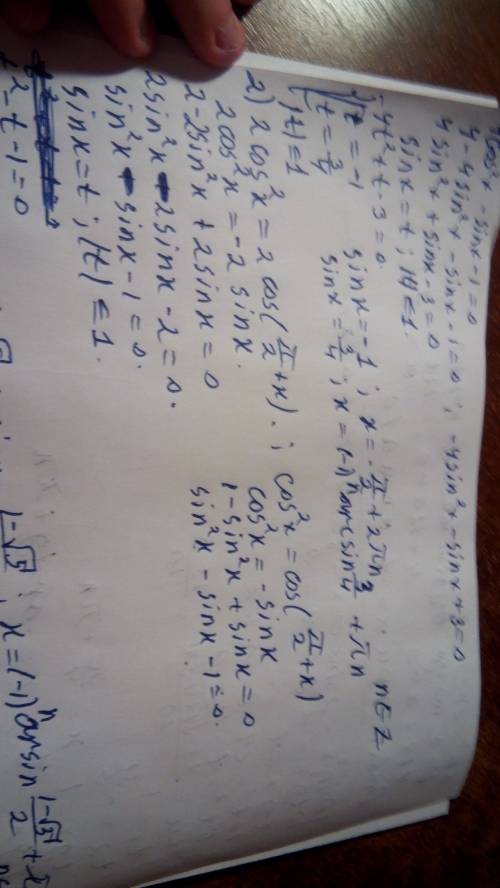 cos²x - sinx - 1 = 0
4 - 4sin²x - sinx - 1 = 0 ; -4sin²x - sinx + 3 = 0
4sin²x + sinx - 3 = 0
sinx = t ; |t| ≤ 1.
4t² + t - 3 = 0.
t = -1 sinx = -1 ; x = -π/2 + 2πn
t = 3/4 sinx = 3/4 ; x = (-1)ⁿ arcsin 3/4 + πn n ∈ Z
|t| ≤ 1
2) 2cos²x = 2cos(π/2 + x). ; cos²x = cos(π/2 + x)
2cos²x = -2 sinx. cos²x = -sinx
2 - 2sin²x + 2sinx = 0 1 - sin²x + sinx = 0
2sin²x - 2sinx - 2 = 0. sin²x - sinx - 1 = 0.
sin²x - sinx - 1 = 0.
sinx = t ; |t| ≤ 1.
t² - t - 1 = 0
1-√5 ; x = (-1)ⁿ arcsin (1-√5)/2 + π